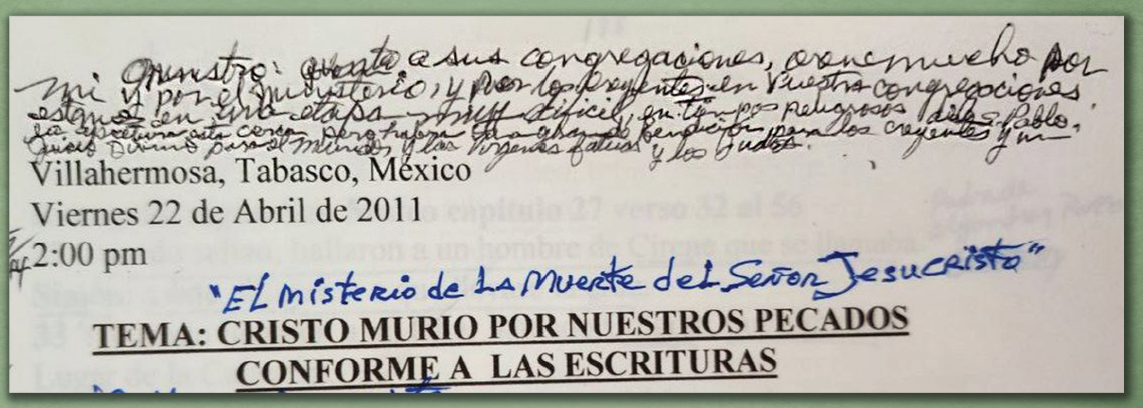 Ministro: a sus congregaciones, oren mucho por
mi y por el ministerio, y por los creyentes en vuestra congregaciones.
estamos en una etapa muy dificil, en peligrosos dice Pablo.
la esta cerca, pero una gran bendición para los creyentes y un
Juicio Divino para el mundo y las Virgenes fatuas y los Judas.
Villahermosa, Tabasco, México
Viernes 22 de Abril de 2011
2:00 pm
"El Misterio de La Muerte del Señor Jesucristo"
TEMA: CRISTO MURIO POR NUESTROS PECADOS
CONFORME A LAS ESCRITURAS